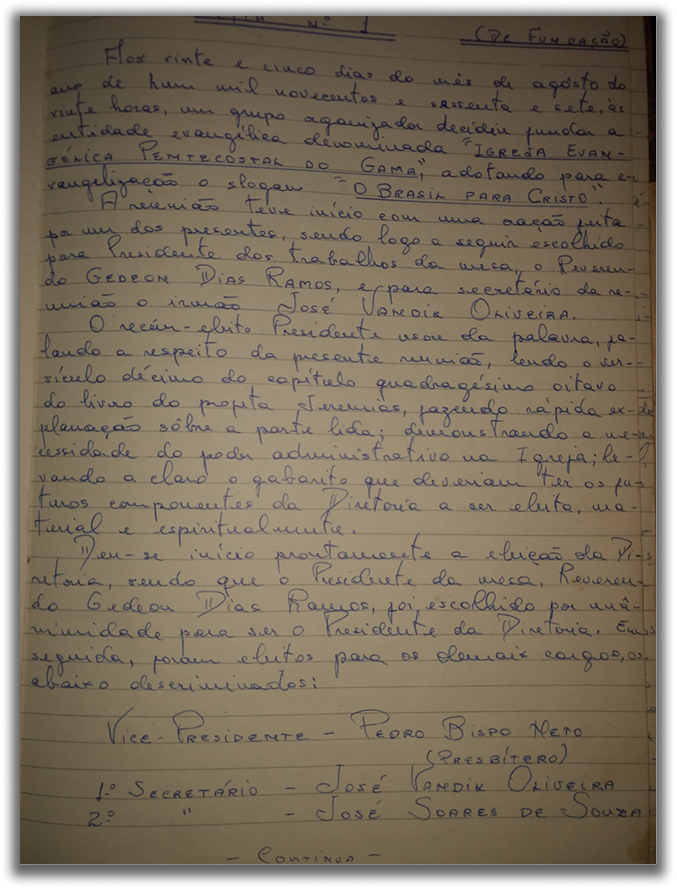 ATA Nº 1 (DE FUNDAÇÃO)
Aos vinte e cinco dias do mês de agôsto do
ano de hum mil novecentos e sessenta e sete, às
vinte horas, um grupo organizador decidiu fundar a
entidade evangélica denominada "IGREJA EVAN-
GÉLICA PENTECOSTAL DO GAMA", adotando para e-
vangelização o slogan "O BRASIL PARA CRISTO".
A reunião teve início com uma oração feita
por um dos presentes, sendo logo a seguir escolhido
para Presidente dos trabalhos da mesa, o Reveren-
do GEDEON DIAS RAMOS, e para secretário da re-
união o irmão JOSÉ VANDIK OLIVEIRA.
O recém-eleito Presidente usou da palavra, fa-
lando a respeito da presente reunião, lendo o ver-
sículo décimo do capítulo quadragésimo oitavo
do livro do profeta Jeremias, fazendo rápida ex-
planação sôbre a parte lida; demonstrando a ne-
cessidade do poder administrativo na Igreja; le-
vando a claro o gabarito que deveriam ter os fu-
turos componentes da Diretoria a ser eleita, ma-
terial e espiritualmente.
Deu-se início prontamente a eleição da Di-
retoria, sendo que o Presidente da mesa, Reveren-
do Gedeon Dias Ramos, foi escolhido por unâ-
nimidade para ser o Presidente da Diretoria. Em
seguida, foram eleitos para os demais cargos, os
abaixo descriminados:
VICE-PRESIDENTE - PEDRO BISPO NETO
(PRESBÍTERO)
1º SECRETÁRIO - JOSÉ VANDIK OLIVEIRA
2º " - JOSÉ SOARES DE SOUZA
- CONTINUA -